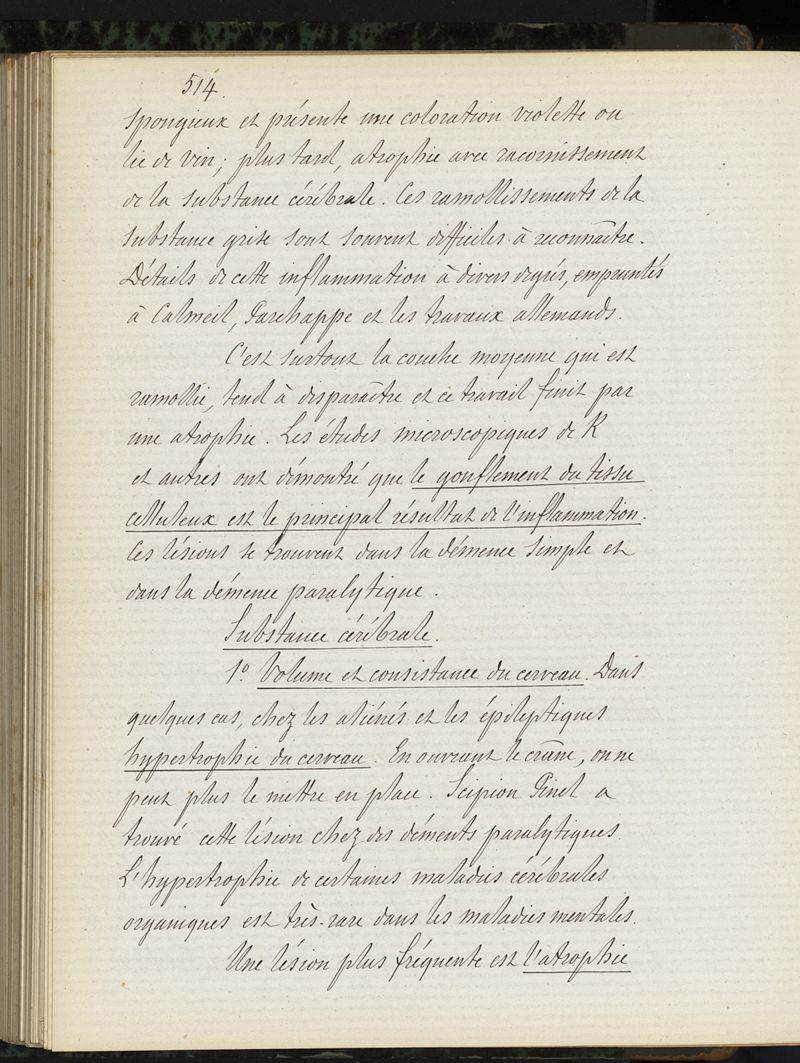 514.
spongieux et présente une coloration violette ou
lie de vin ; plus tard, atrophie avec racornissement
de la substance cérébrale. Ces ramollissements de la
substance grise sont souvent difficiles à reconnaître.
Détails de cette inflammation à divers degrés, empruntés
à Calmeil, Parchappe et les travaux allemands.
C'est surtout la couche moyenne qui est
ramollie, tend à disparaître et ce travail finit par
une atrophie. Les études microscopiques de R
et autres ont démontré que le gonflement du tissu
celluleux est le principal résultat de l'inflammation.
Ces lésions se trouvent dans la démence simple et
dans la démence paralytique.
Substance cérébrale.
1º. Volume et consistance du cerveau. Dans
quelques cas, chez les aliénés et les épileptiques
hypertrophie du cerveau. En ouvrant le crâne, on ne
peut plus le mettre en place. Scipion Pinel a
trouvé cette lésion chez des déments paralytiques.
L'hypertrophie de certaines maladies cérébrales
organiques est très-rare dans les maladies mentales.
Une lésion plus fréquente est l'atrophie